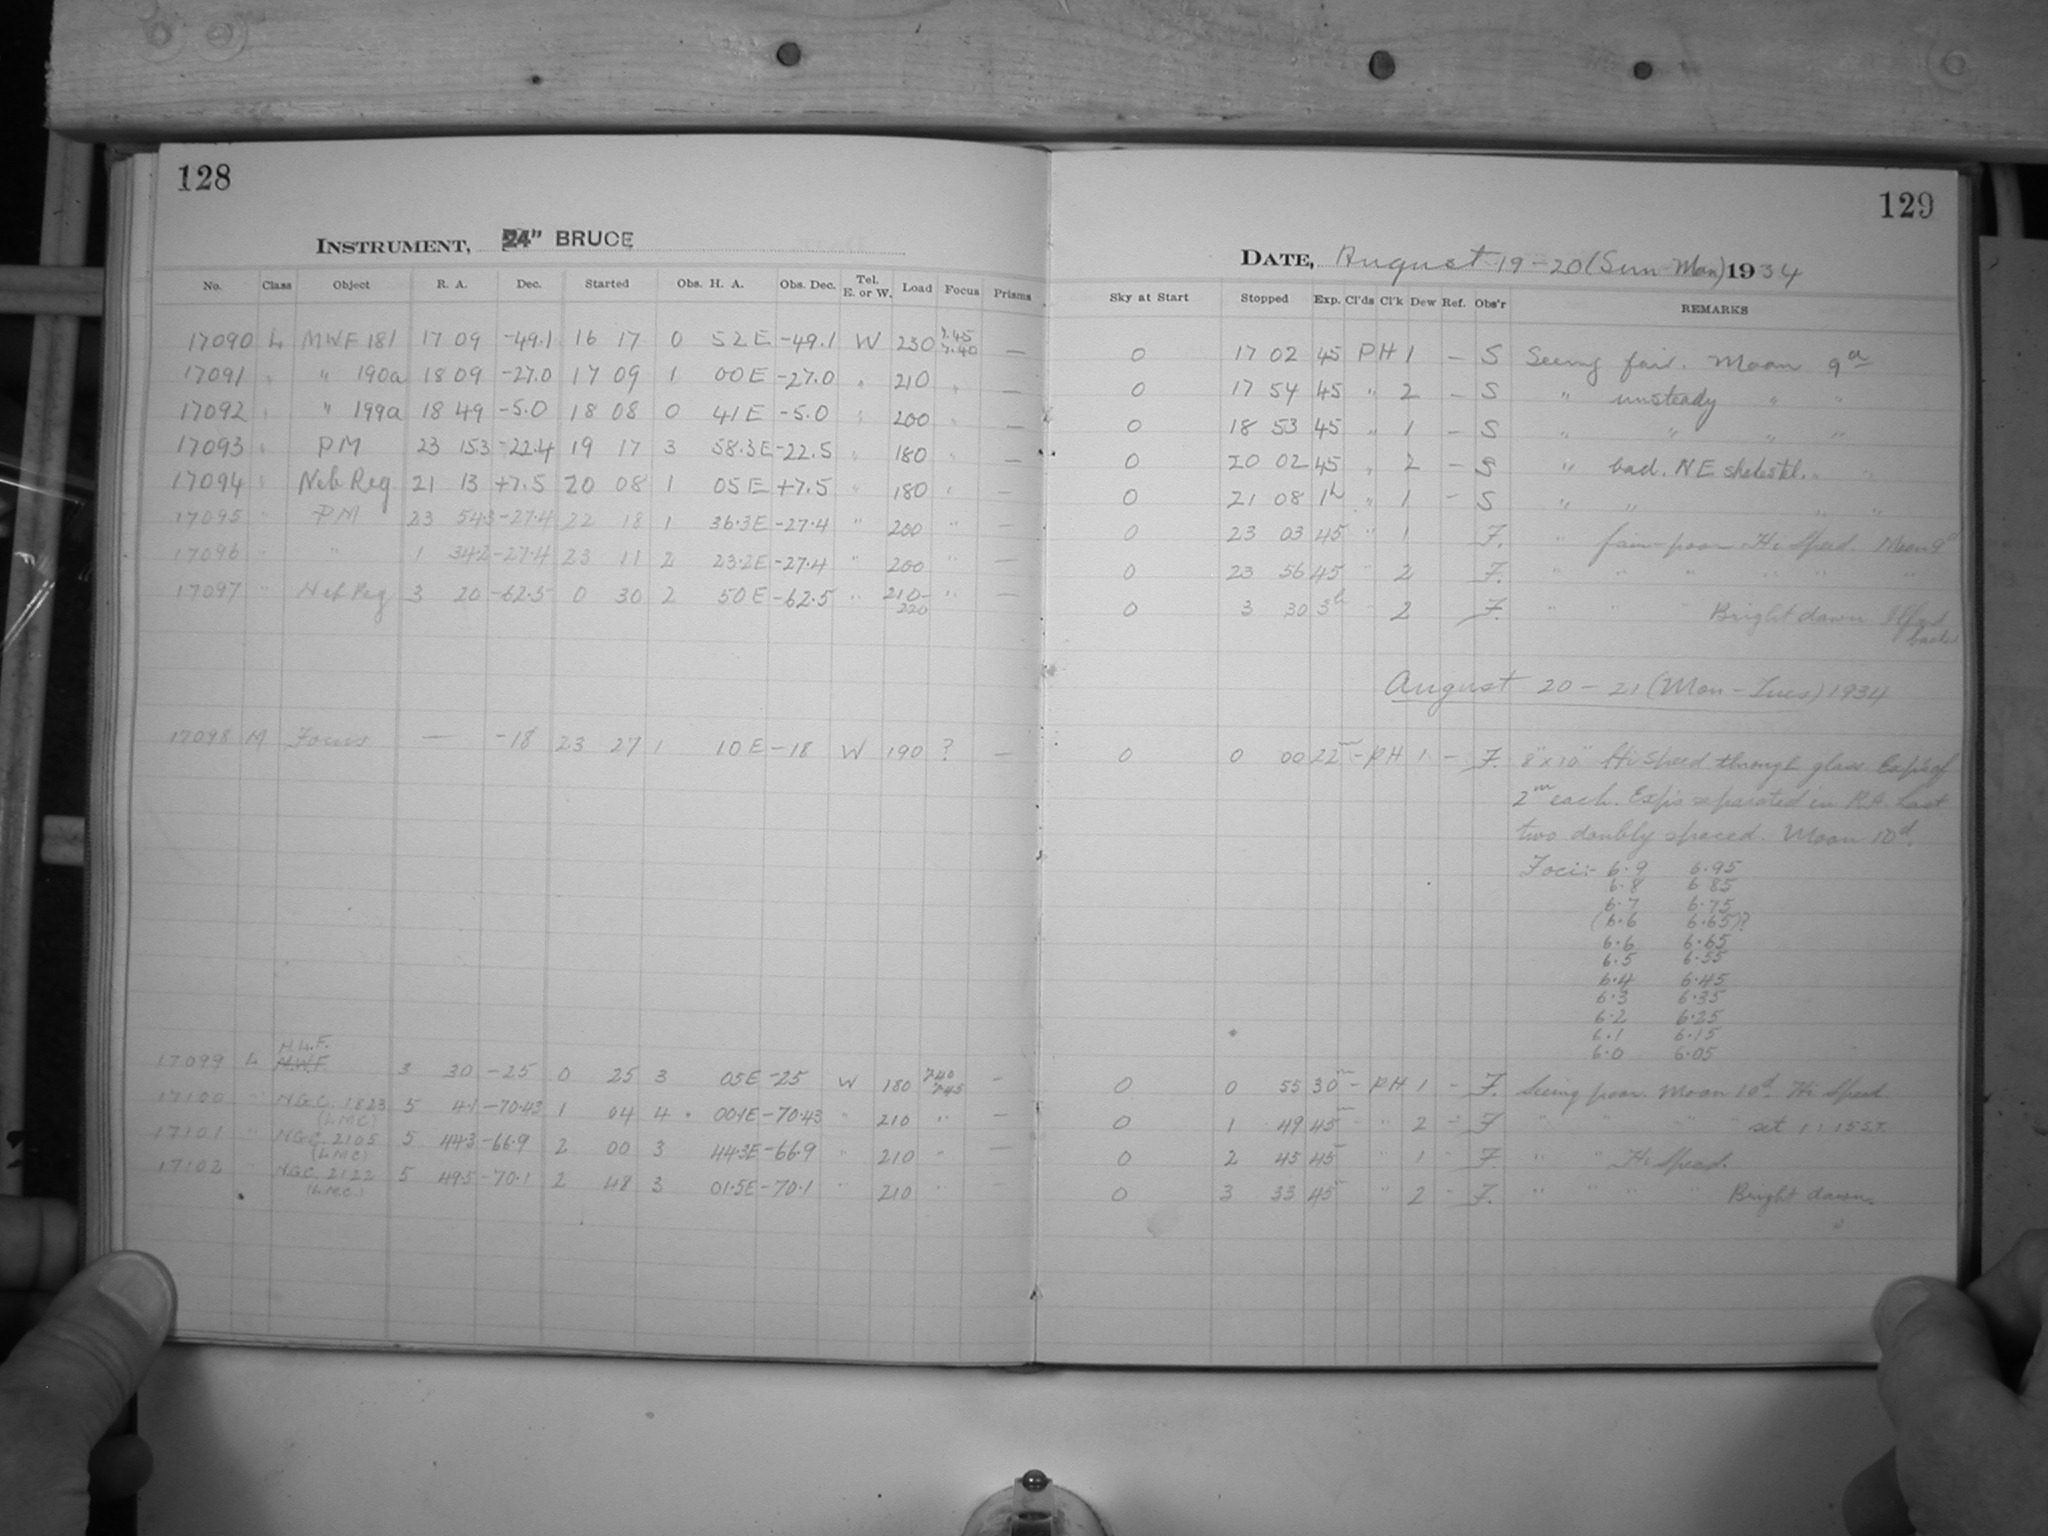 128
INSTRUMENT, 24" BRUCE
No. Class Object R. A. Dec. Started Obs. H. A. Obs. Dec. Tel. E. or W. Load Focus Prisms
17090 L MWF 181 17 09 -49.1 16 17 0 52 E -49.1 W 230 7.45 7.40 —
17091 " " 190a 18 09 -27.0 17 09 1 00 E -27.0 " 210 " —
17092 " " 199a 18 49 -5.0 18 08 0 41 E -5.0 " 200 " —
17093 " PM 23 15.3 -22.4 19 17 3 58.3 E -22.5 " 180 " —
17094 " Neb Reg 21 13 +7.5 20 08 1 05 E +7.5 " 180 " —
17095 " PM 23 54.3 -27.4 22 18 1 36.3 E -27.4 " 200 " —
17096 " " 1 34.2 -27.4 23 11 2 23.2 E -27.4 " 200 " —
17097 " Neb Reg 3 20 -62.5 0 30 2 50 E -62.5 " 210-220 " —
17098 M Focus — -18 23 27 1 10 E -18 W 190 ? —
17099 L H.L.F. M.W.F. 3 30 -25 0 25 3 05 E -25 W 180 7.40 7.45 —
17100 " NGC. 1823 (LMC) 5 4.1 -70.43 1 04 4 00.1 E -70.43 " 210 "
17101 " NGC. 2105 (LMC) 5 44.3 -66.9 2 00 3 44.3 E -66.9 " 210 " —
17102 " NGC. 2122 (L.M.C.) 5 49.5 -70.1 2 48 3 01.5 E -70.1 " 210 " —
129
DATE, August 19-20 (Sun-Mon) 1934
Sky at Start Stopped Exp. Cl'ds Cl'k Dew Ref. Obs'r REMARKS
0 17 02 45 PH 1 — S Seeing fair. Moon 9d
0 17 54 45 " 2 — S " unsteady " "
0 18 53 45 " 1 — S " " " "
0 20 02 45 " 2 — S " bad. NE " "
0 21 08 1h " 1 — S " " " "
0 23 03 45 " 1 F. " fair-poor Hi Speed. Moon 9d
0 23 56 45 " 2 F. " " " " " "
0 3 30 3h " 2 F. " " " Bright dawn backed
August 20 - 21 (Mon - Tues) 1934
0 0 00 22m — PH 1 — F. 8" x 10" Hi Speed through glass Exp's of
2m each. Exp's separated in RA Last
two doubly spaced. Moon 10d.
Foci:- 6.9 6.95
6.8 6.85
6.7 6.75
(6.6 6.65)?
6.6 6.65
6.5 6.55
6.4 6.45
6.3 6.35
6.2 6.25
6.1 6.15
6.0 6.05
0 0 55 30m — PH 1 — F. Seeing poor. Moon 10d. Hi Speed
0 1 49 45m " 2 — F " " " " set 1:15 S.T.
0 2 45 45m " 1 — F. " " Hi Speed.
0 3 33 45m " 2 — F. " " " " Bright dawn.